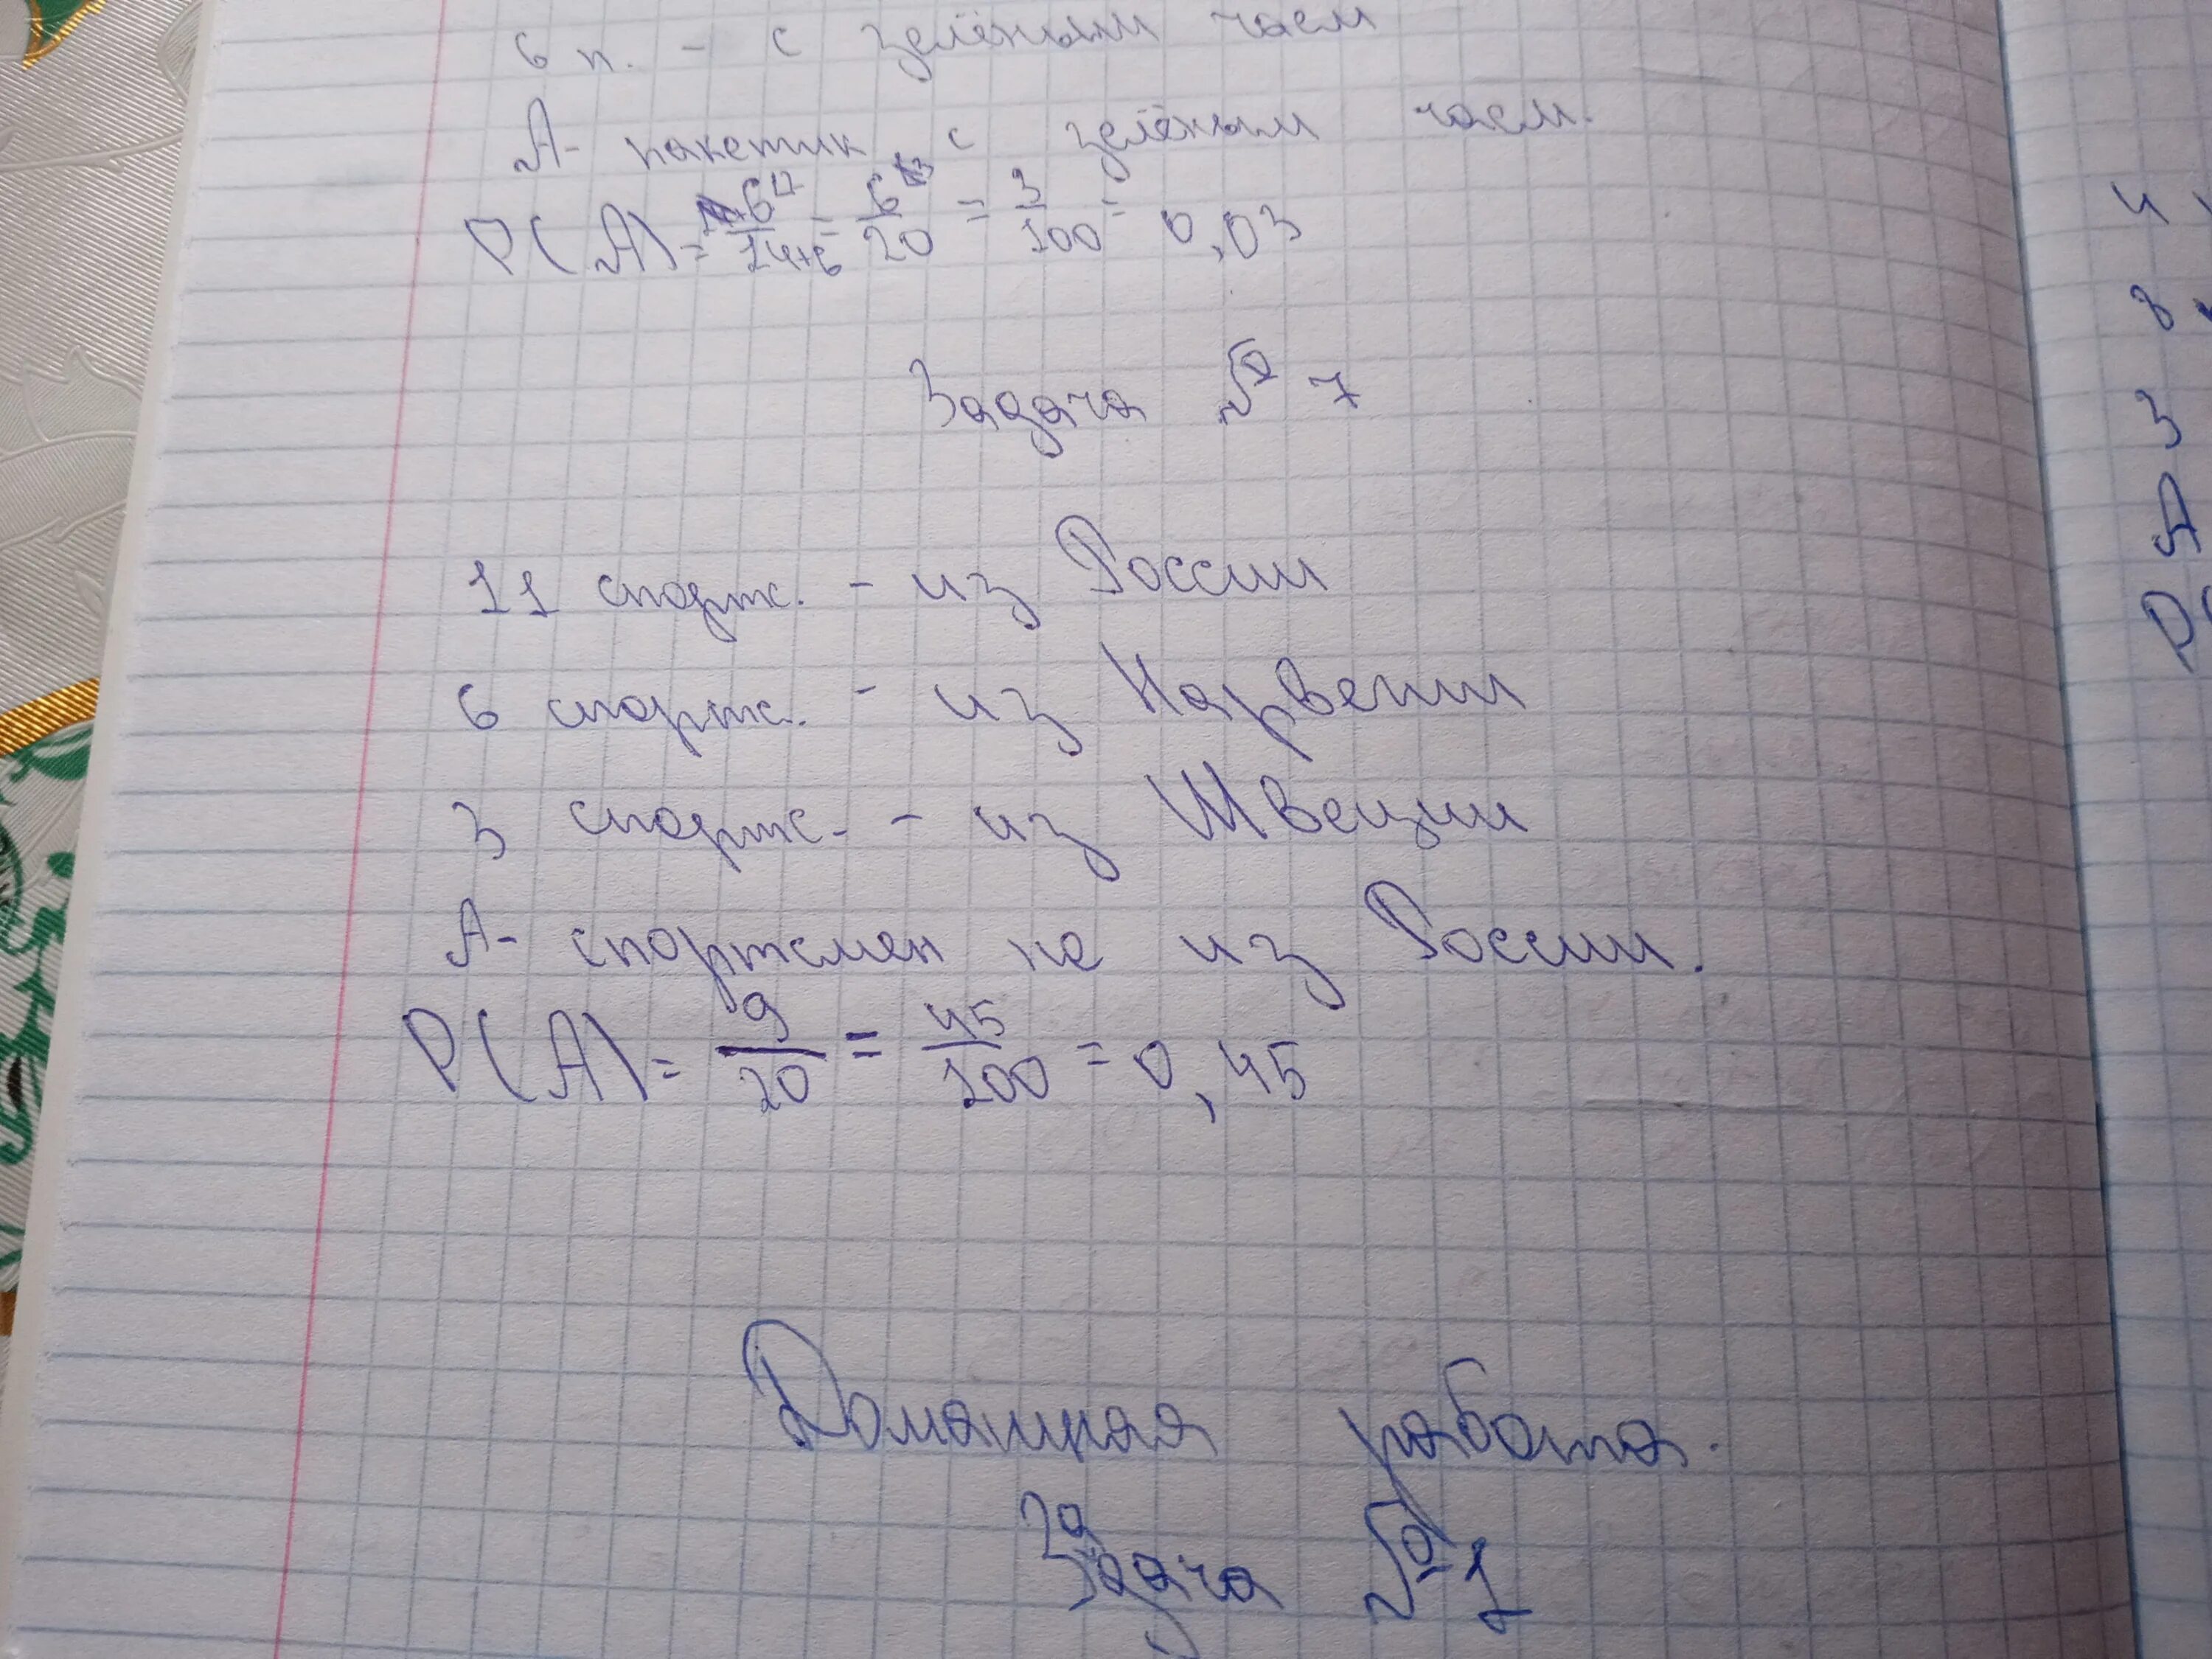 6 п. - с зелёным чаем
А- пакетик с зелёным чаем.
P(A)= 6/14+6 = 6/20 = 3/100 = 0,03
Задача № 7
11 спортс. - из России
6 спортс. - из Нарвегии
3 спортс. - из Швеции
А- спортсмен не из России.
P(A)= 9/20 = 45/100 = 0,45
Домашняя работа.
Задача № 1
4
8
3
А
P(